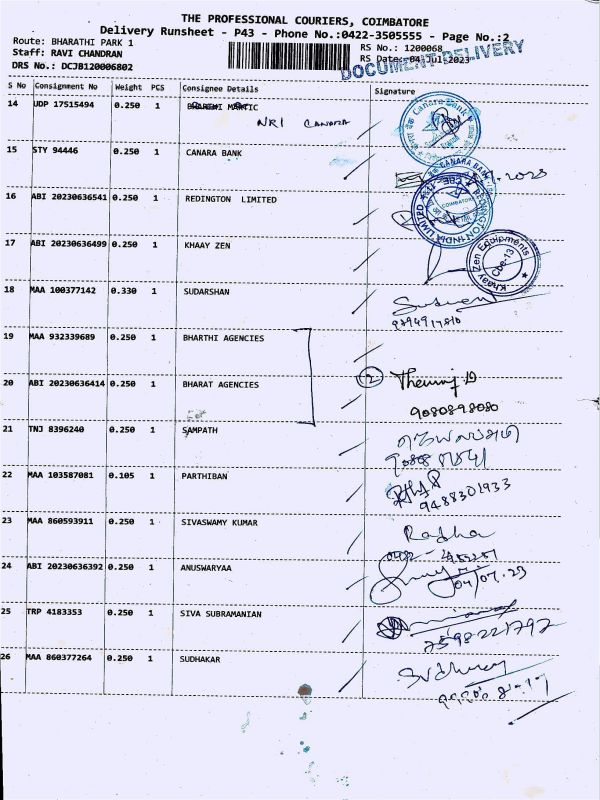 THE PROFESSIONAL COURIERS, COIMBATORE
Delivery Runsheet - P43 - Phone No.:0422-3505555 - Page No.:2
Route: BHARATHI PARK 1 RS No.: 1200068
Staff: RAVI CHANDRAN RS Date: 04 Jul 2023
DOCUMENT DELIVERY
DRS No.: DCJB120006802
S No Consignment No Weight PCS Consignee Details Signature
14 UDP 17515494 0.250 1
NRI CANARA
Canara Bank
15 STY 94446 0.250 1 CANARA BANK
CANARA BANK
16 ABI 20230636541 0.250 1 REDINGTON LIMITED
REDINGTON INDIA LIMITED
COIMBATORE
17 ABI 20230636499 0.250 1 KHAAY ZEN
Khaay Zen Equipments
Cbe-13
18 MAA 100377142 0.330 1 SUDARSHAN
19 MAA 932339689 0.250 1 BHARTHI AGENCIES
20 ABI 20230636414 0.250 1 BHARAT AGENCIES 2
9080898080
21 TNJ 8396240 0.250 1 SAMPATH
22 MAA 103587081 0.105 1 PARTHIBAN
9488301933
23 MAA 860593911 0.250 1 SIVASWAMY KUMAR
Radha
24 ABI 20230636392 0.250 1 ANUSWARYAA
04/07.23
25 TRP 4183353 0.250 1 SIVA SUBRAMANIAN
7598221792
26 MAA 860377264 0.250 1 SUDHAKAR